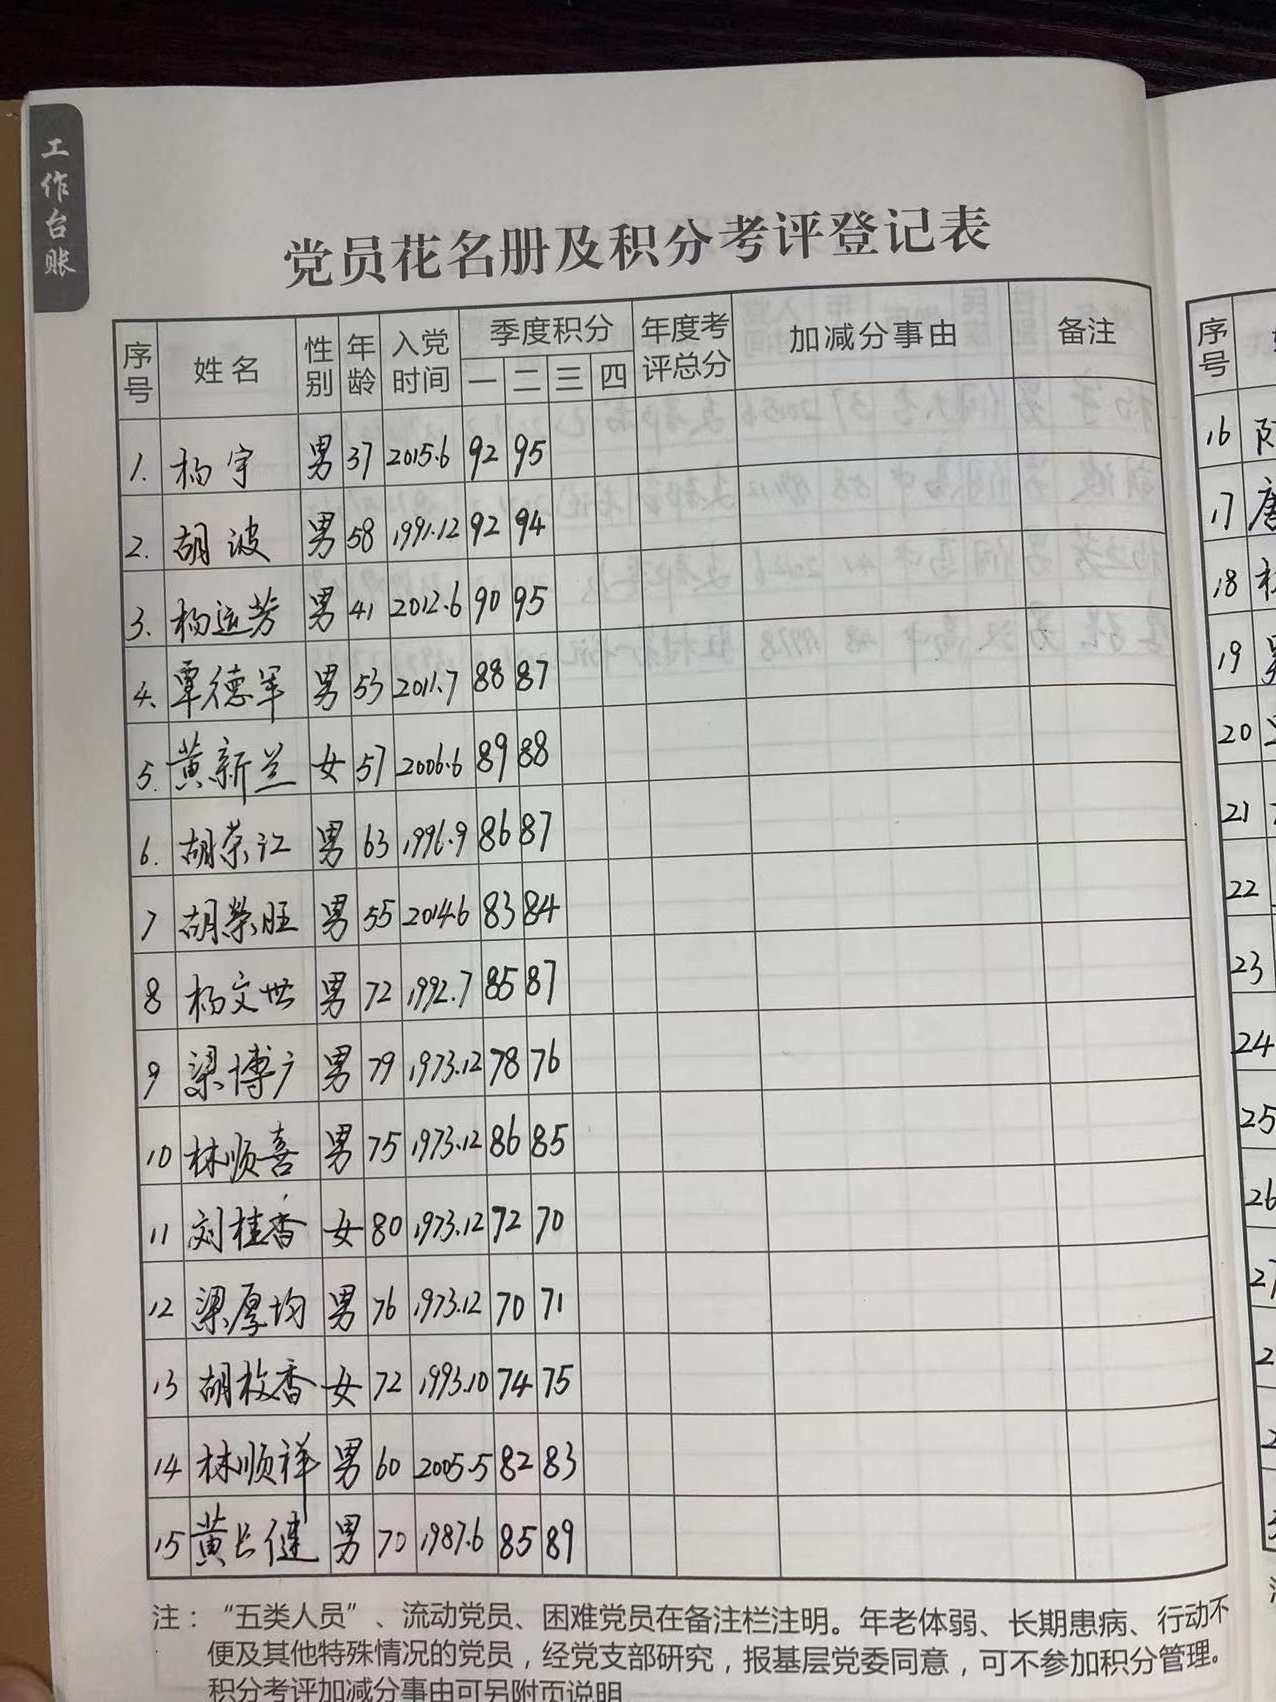 工作台账
党员花名册及积分考评登记表
序号 姓名 性别 年龄 入党时间 季度积分 一 二 三 四 年度考评总分 加减分事由 备注
1. 杨宇 男 37 2015.6 92 95
2. 胡波 男 58 1991.12 92 94
3. 杨远芳 男 41 2012.6 90 95
4. 覃德军 男 53 2011.7 88 87
5. 黄新兰 女 57 2006.6 89 88
6. 胡荣江 男 63 1996.9 86 87
7 胡荣旺 男 55 2014.6 83 84
8 杨文世 男 72 1992.7 85 87
9 梁博广 男 79 1973.12 78 76
10 林顺喜 男 75 1973.12 86 85
11 刘桂香 女 80 1973.12 72 70
12 梁厚均 男 76 1973.12 70 71
13 胡枚香 女 72 1993.10 74 75
14 林顺祥 男 60 2005.5 82 83
15 黄长健 男 70 1987.6 85 89
注：“五类人员”、流动党员、困难党员在备注栏注明。年老体弱、长期患病、行动不
便及其他特殊情况的党员，经党支部研究，报基层党委同意，可不参加积分管理。
积分考评加减分事由可另附页说明
序号
16
17
18
19
20
21
22
23
24
25
26